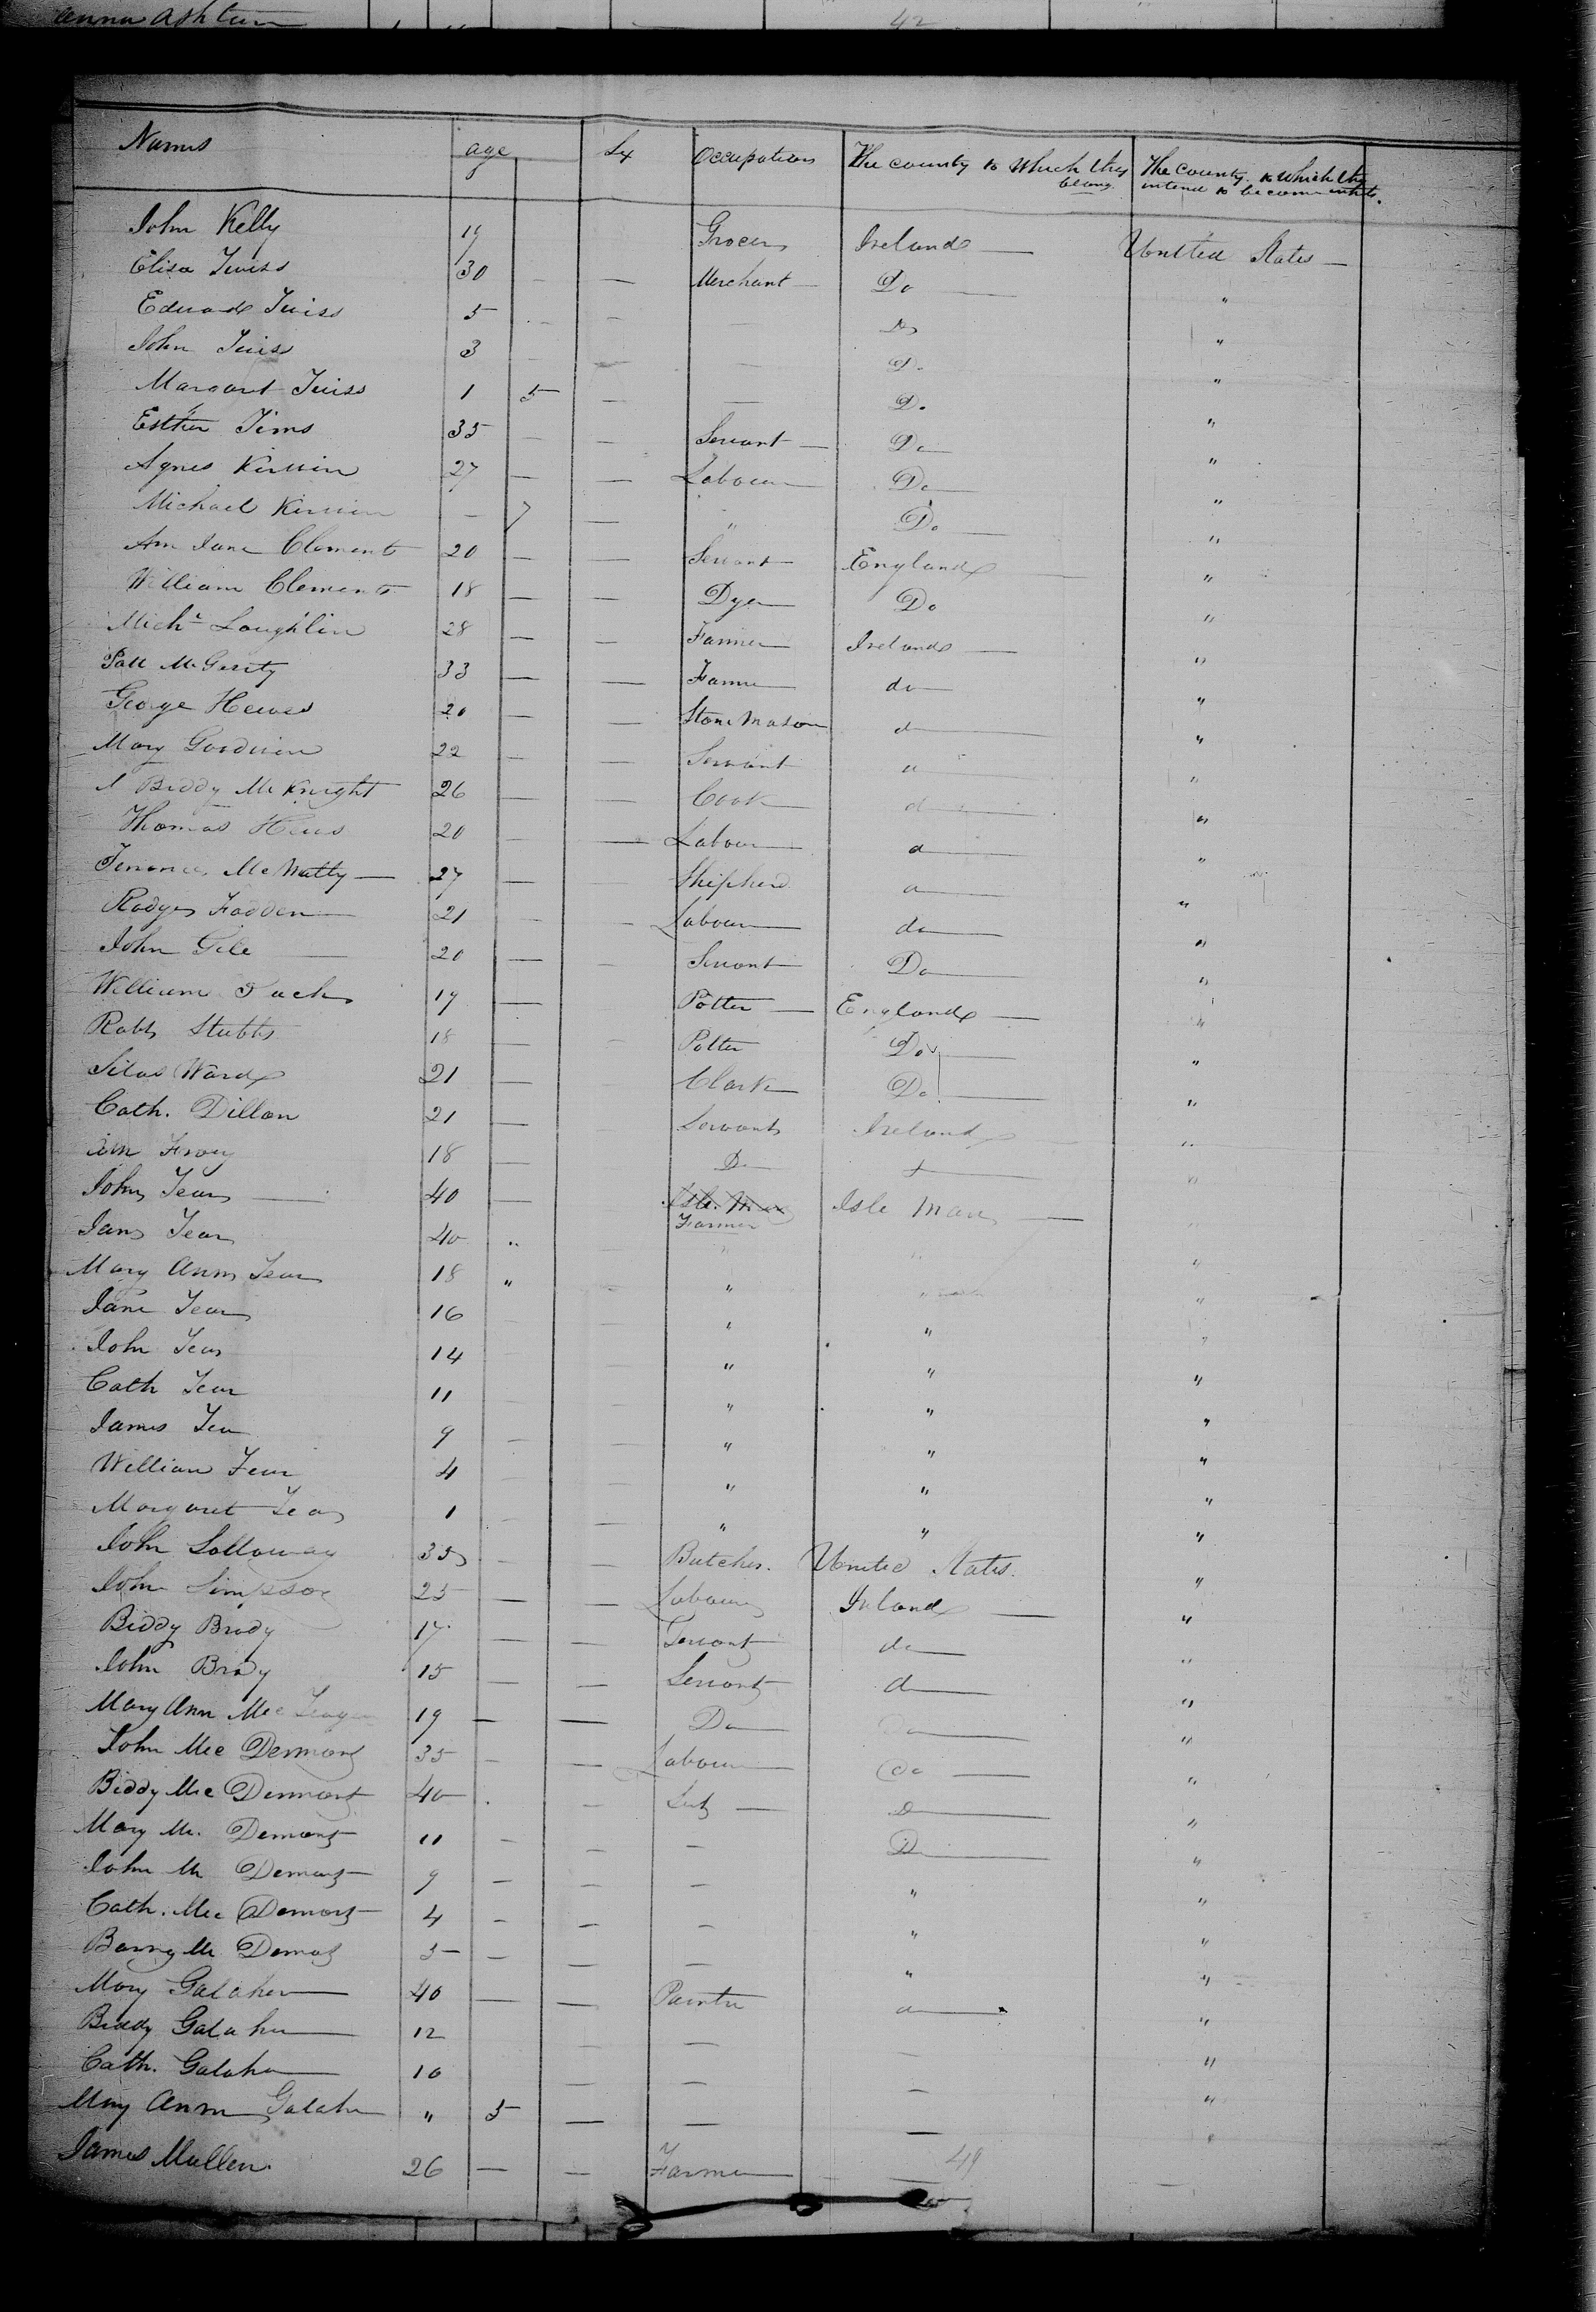 Anna Ashton 42
Names age Sx Occupation The county to which they belong The county to which they intend to become inhbts.
John Kelly 19 Grocer Ireland — United States —
Elisa Twiss 30 — — Merchant — Do — "
Edward Twiss 5 — — — Do "
John Twiss 3 — — — Do "
Margaret Twiss 1 5 — — Do "
Esther Tims 35 — — Servant — Do — "
Agnes Kirwin 27 — — Labour — Do — "
Michael Kirwin — 7 — " Do — "
Ann Jane Clement 20 — — Servant — England — "
William Clement 18 — — Dyer — Do "
Michl Loughlin 28 — — Farmer — Ireland — "
Patt McGerity 33 — — Farmer — do — "
George Hewes 20 — — Stone Mason d — "
Mary Goodwin 22 — — Servant "
Biddy McKnight 26 — — Cook — d — "
Thomas Hews 20 — — Labour — d — "
Terrance McNatty — 27 — Shipherd "
Rodger Fadden — 21 — — Labour — do — "
John Gile — 20 — — Servant — Do — "
William 19 — Potter — England — "
Robt Stubbs 18 — Potter Do — "
Silas Ward 21 — Clark — Do — "
Cath. Dillon 21 — Servant Ireland — "
Ann 18 — Do — "
John Tear — 40 — Isle Man Farmer Isle Man — "
Jane Tear 40 " " " "
Mary Ann Tear 18 " " " "
Jane Tear 16 — " " "
John Tear 14 — " " "
Cath Tear 11 — " " "
James Tear 9 — " " "
William Tear 4 — " " "
Margaret Tear 1 — " " "
John Solloway 35 — — Butcher. United States. "
John Simpson 25 — — Labour Ireland — "
Biddy Brody 17 — — Servant do — "
John Brody 15 — — Servant d — "
Mary Ann Mc 19 — — Do — "
John Mc Dermont 35 — — Labour — Do — "
Biddy Mc Dermont 40 . — — D — "
Mary Mc. Demont 11 — — — D — "
John Mc Demont 9 — — — " "
Cath. Mc Demont 4 — — — " "
Barny Mc Demot 3 — — — " "
Mary Galaher — 40 — — Painter "
Biddy Galaher — 12 — — — "
Cath. Galaher — 10 — — — "
Mary Ann Galaher " 5 — — — "
James Mullen. 26 — — Farmer — 49